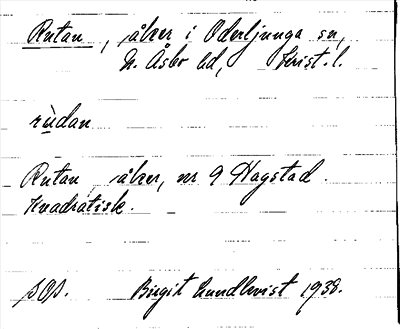 Rutan, åker i Oderljunga sn,
N. Åsbo hd, Krist. l.
rùdan
Rutan, åker, nr 9 Hagstad.
Kvadratisk.
Birgit Lundkvist 1938.